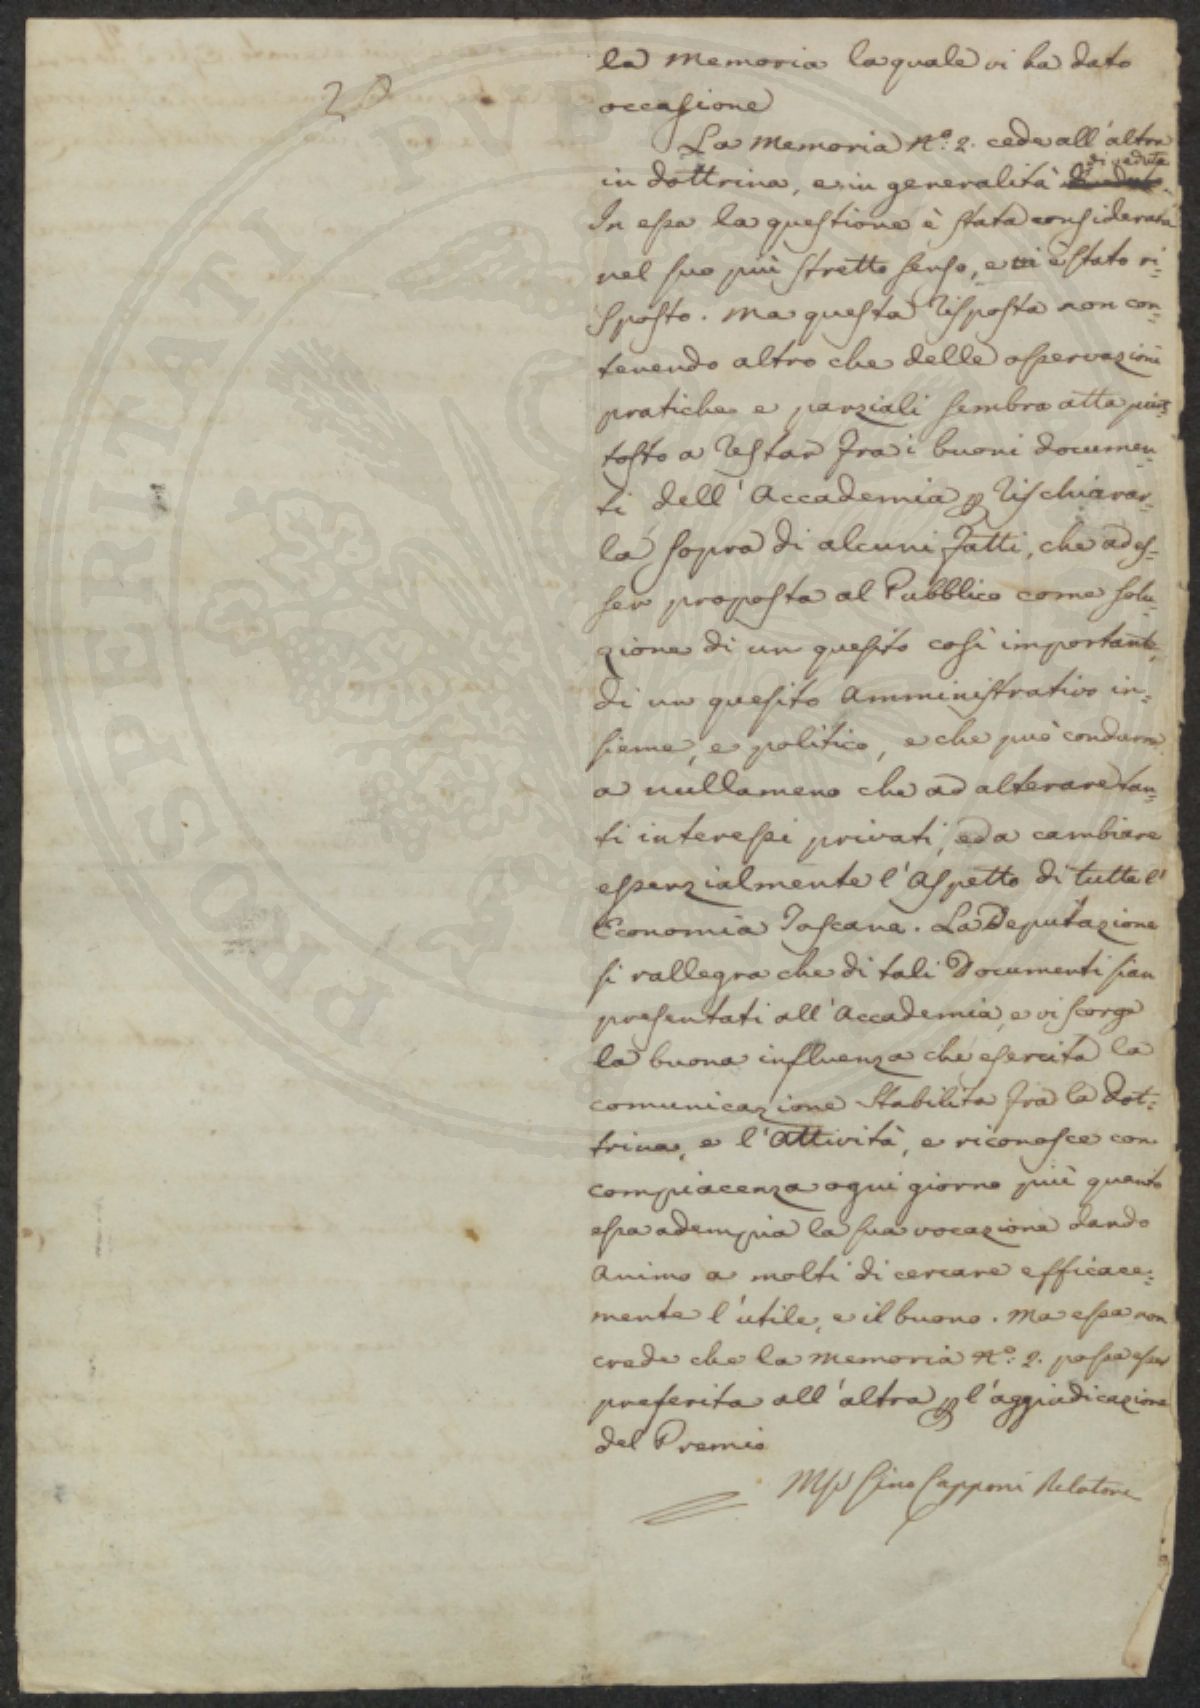 20
la Memoria la quale vi ha dato
occasione
La Memoria N.o 2. cede all'altra
in dottrina, e in generalità di vedute.
In essa la questione è stata considerata
nel suo più stretto senso, e vi è stato ri=
sposto. Ma questa risposta non con=
tenendo altro che delle osservazioni
pratiche e parziali sembra atta piut=
tosto a restar fra i buoni documen=
ti dell'Accademia p rischiarar=
la sopra di alcuni fatti, che ad es=
ser proposta al Pubblico come solu=
zione di un quesito così importante,
di un quesito Amministrativo in=
sieme, e politico, e che può condurre
a nullameno che ad alterare tan=
ti interessi privati, ed a cambiare
essenzialmente l'Aspetto di tutta l'
Economia Toscana. La Deputazione
si rallegra che di tali Documenti sian
presentati all'Accademia, e vi scorge
la buona influenza che esercita la
comunicazione stabilita fra la dot=
trina, e l'Attività, e riconosce con
compiacenza ogni giorno più quanto
essa adempia la sua vocazione dando
Animo a molti di cercare efficace=
mente l'utile, e il buono. Ma essa non
crede che la Memoria N.o 2. possa esser
preferita all'altra p l'aggiudicazione
del Premio
Gino Capponi Relatore
PROSPERITATI PVB